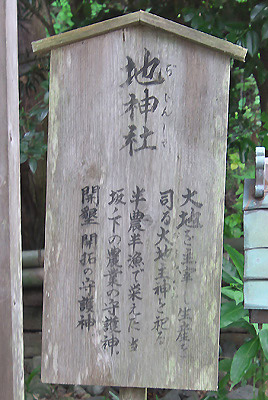 地神社
ぢしんしゃ
大地を主宰し生産を
司る大地主神を祀る
半農半漁で栄えた当
坂ノ下の農業の守護神、
開墾 開拓の守護神